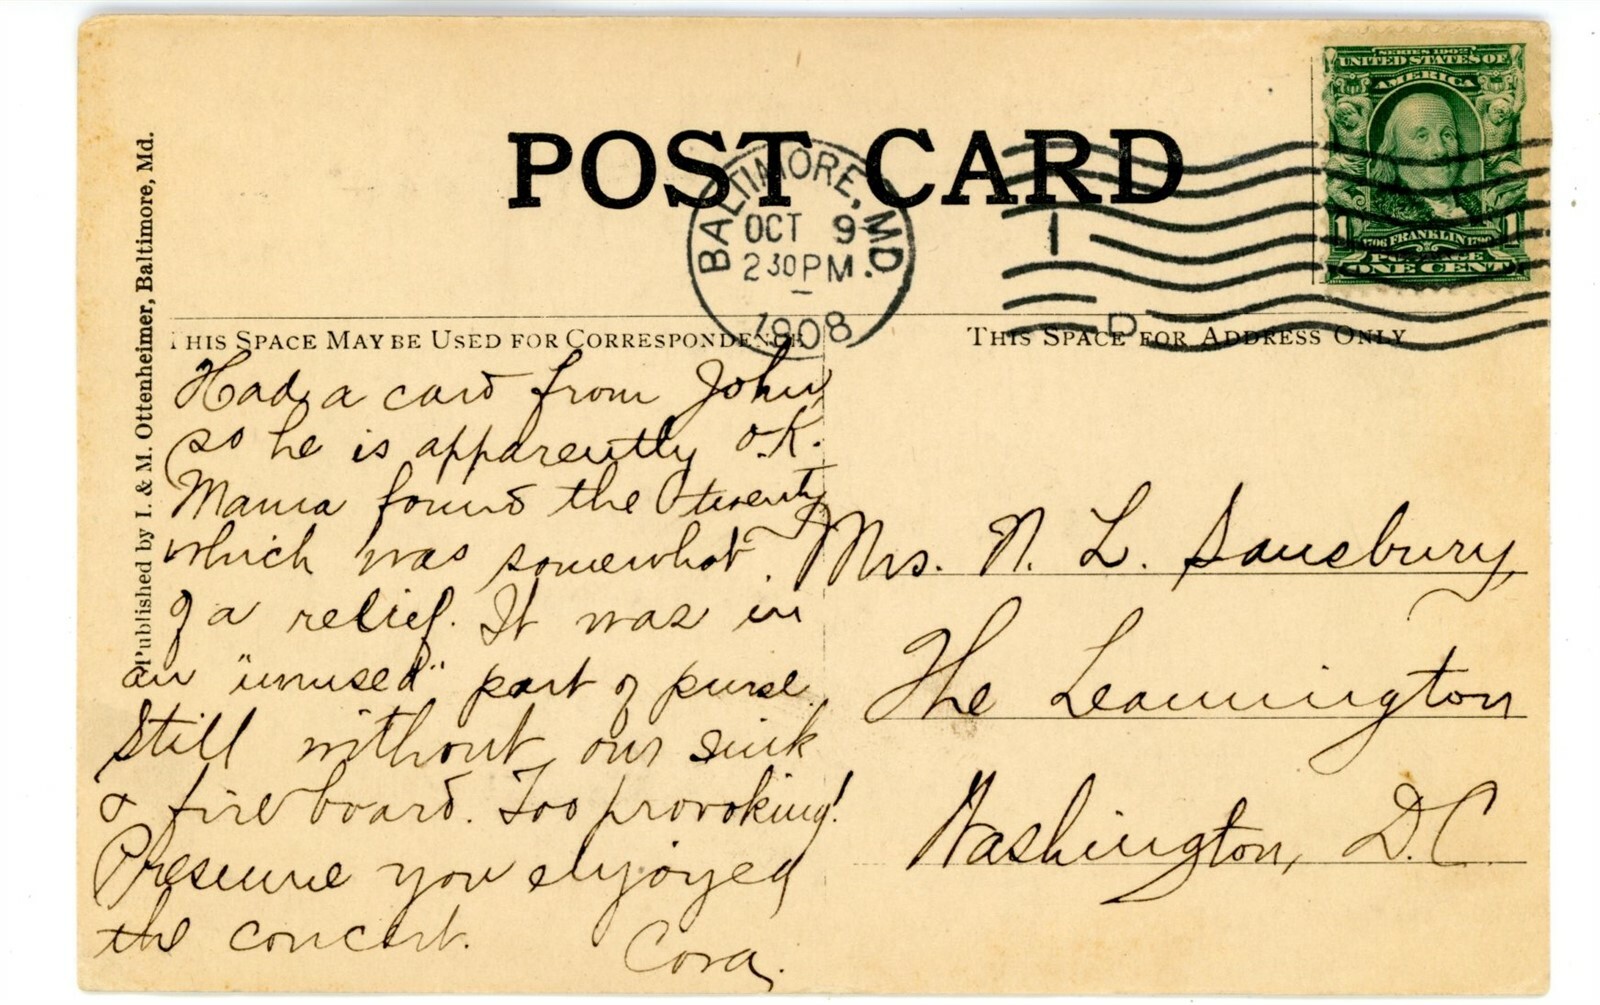 POST CARD
SERIES 1902
UNITED STATES OF
AMERICA
1 1
1706 FRANKLIN 1790
POSTAGE
ONE CENT
BALTIMORE, MD.
OCT 9
2 30 PM
1908
1
D
Published by I. & M. Ottenheimer, Baltimore, Md.
THIS SPACE MAY BE USED FOR CORRESPONDENCE
THIS SPACE FOR ADDRESS ONLY
Had a card from John,
so he is apparently O.K.
Mama found the twenty
which was somewhat
of a relief. It was in
an "unused" part of purse.
Still without our sink
& fire board. Too provoking!
Presume you enjoyed
the concert.
Cora.
Mrs. N. L. Sansbury,
The Leamington
Washington, D.C.